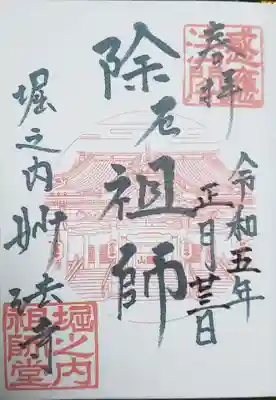 奉拝
令和五年
正月廿三日
除厄祖師
堀之内妙法寺
堀之内
祖師堂